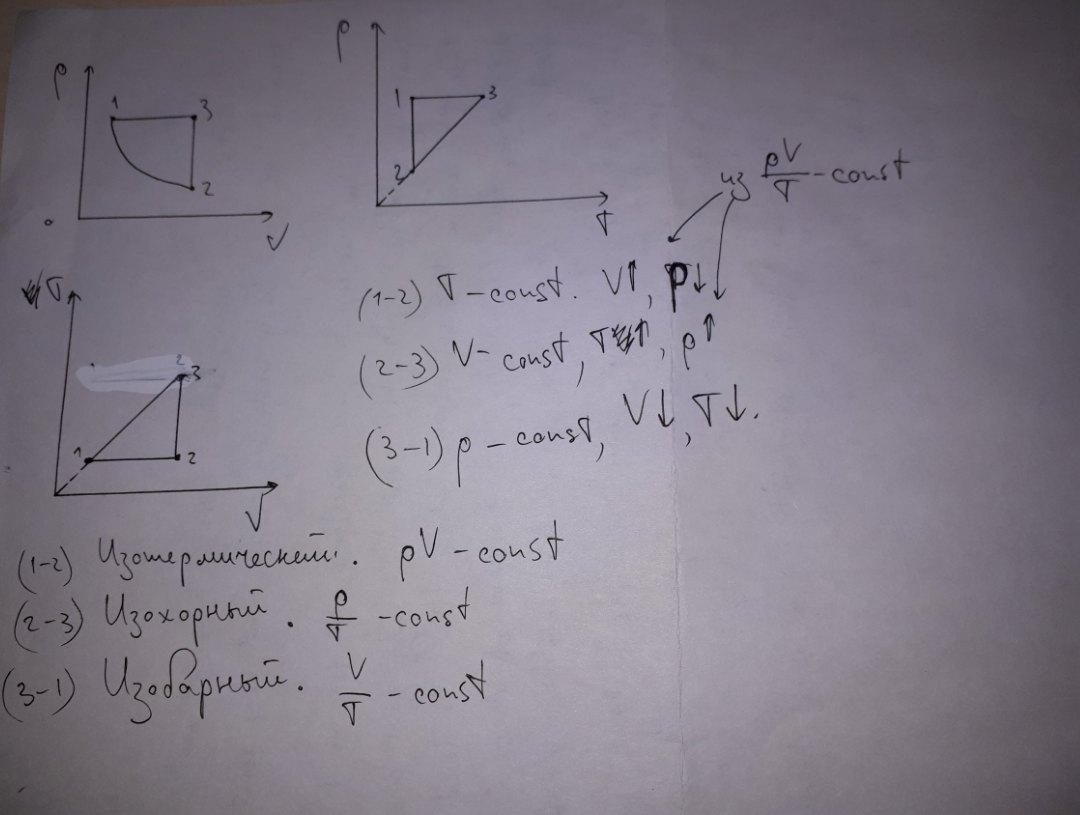 p
1 3
2
0
V
p
1 3
2
T
из pV/T - const
T
2
3
1 2
V
(1-2) T - const. V↑, p↓
(2-3) V - const, T↑, p↑
(3-1) p - const, V↓, T↓.
(1-2) Изотермический. pV - const
(2-3) Изохорный. p/T - const
(3-1) Изобарный. V/T - const